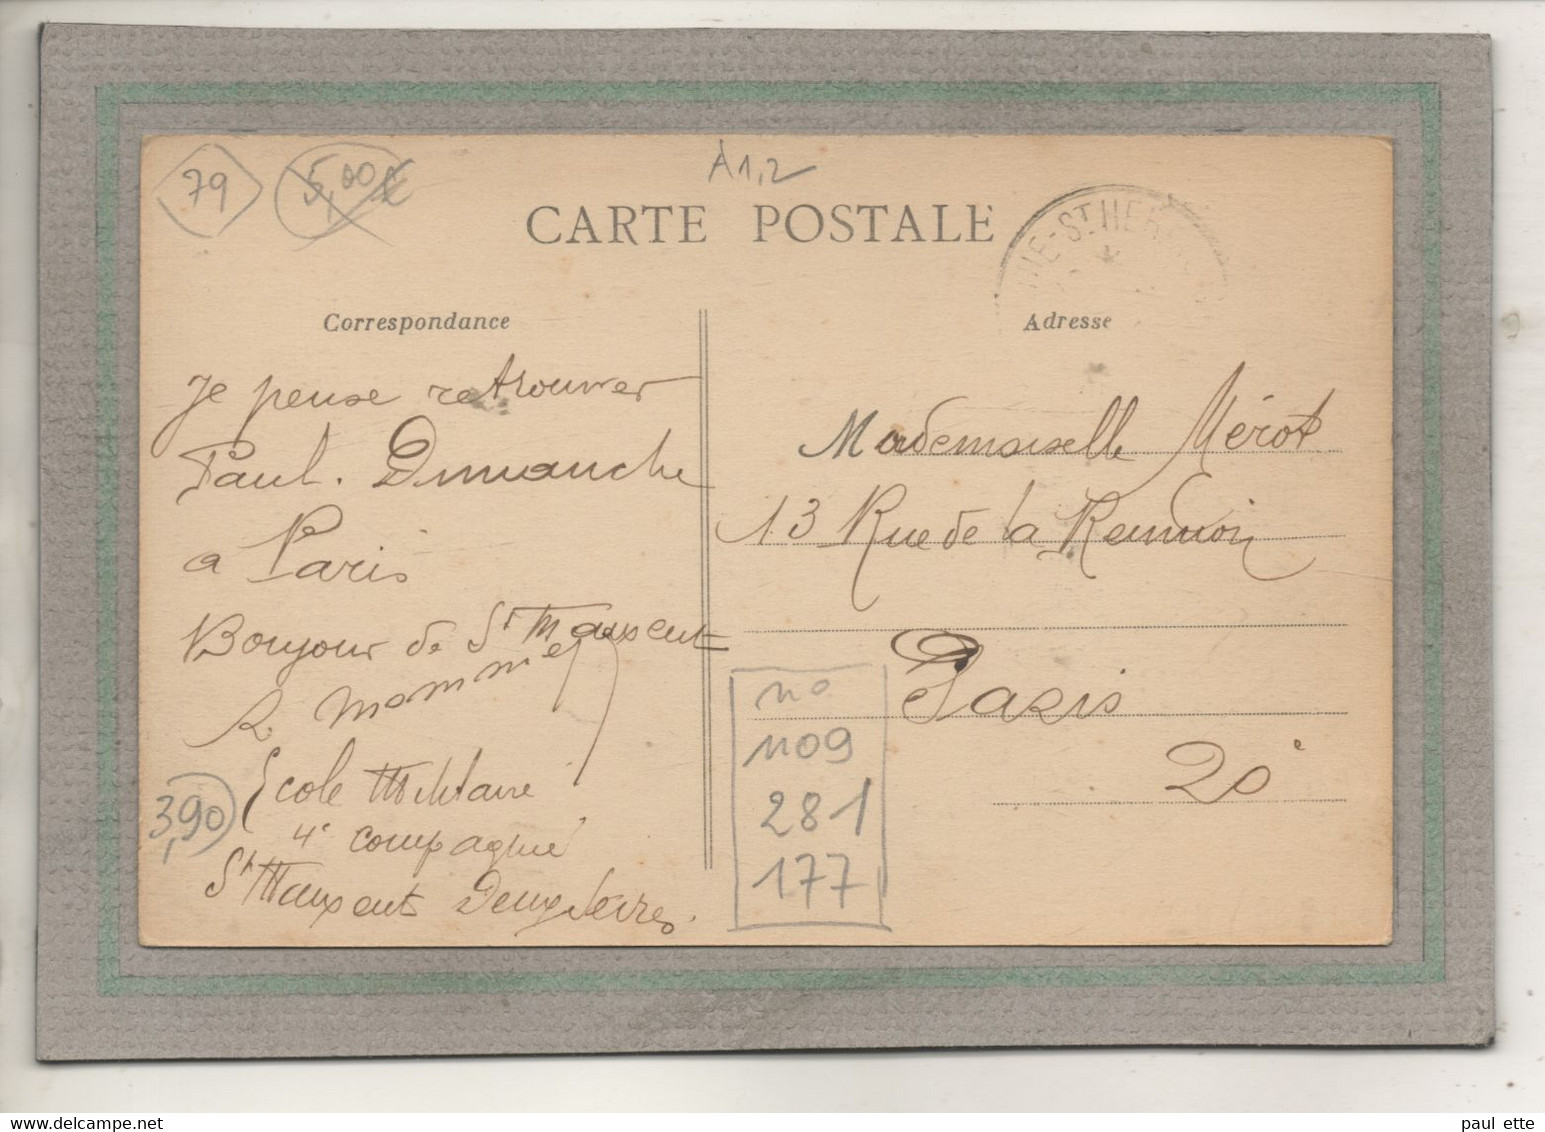 79
5,00€
A1,2
CARTE POSTALE
Correspondance
Adresse
Je pense retrouver
Paul. Dimanche
a Paris
Bonjour de St Maixent
R.
Ecole Militaire
4e compagnie
St Maixent Deux Sèvres.
3,90
Mademoiselle Mérot
13 Rue de la Reunion
Paris
20e
no
1109
281
177
delcampe.net
paul ette